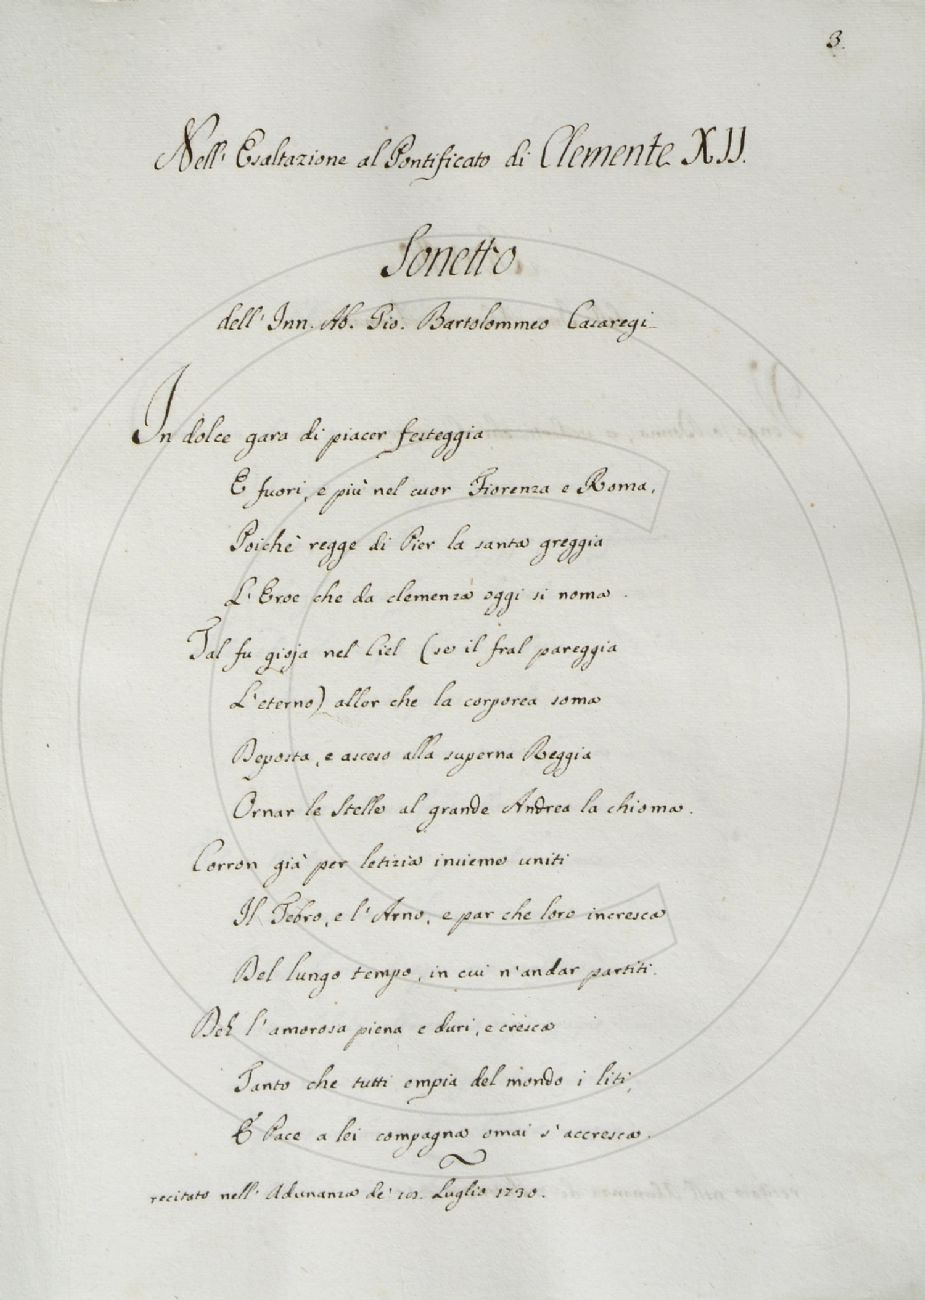 3.
Nell' Esaltazione al Pontificato di Clemente XII.
Sonetto
dell' Inn. Ab. Gio. Bartolommeo Casaregi
In dolce gara di piacer festeggia
E fuori, e più nel cuor Fiorenza e Roma,
Poichè regge di Pier la santa greggia
L'Eroe che da clemenza oggi si noma.
Tal fu gioja nel Ciel (se il fral pareggia
L'eterno) allor che la corporea soma
Deposta, e asceso alla superna Reggia
Ornar le Stelle al grande Andrea la chioma.
Corron già per letizia insieme uniti
Il Tebro, e l'Arno, e par che loro incresca
Del lungo tempo, in cui n'andar partiti.
Deh l'amorosa piena e duri, e cresca
Tanto che tutti empia del mondo i liti,
E Pace a lei compagna omai s'accresca.
recitato nell' Adunanza de' Luglio 1730.